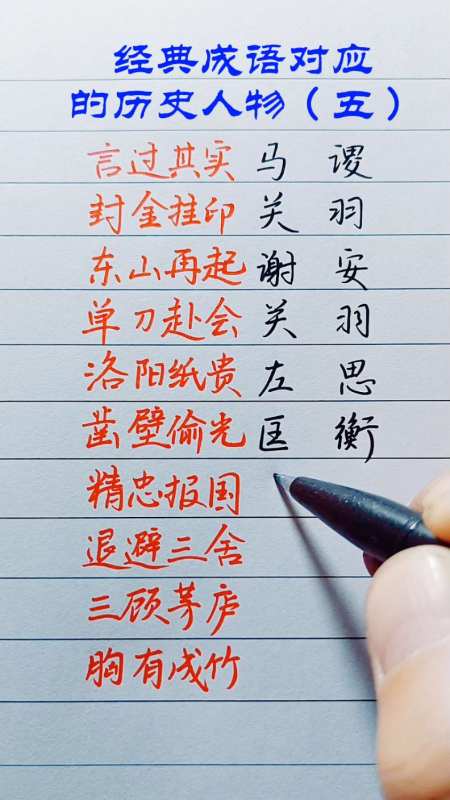 经典成语对应
的历史人物（五）
言过其实 马谡
封金挂印 关羽
东山再起 谢安
单刀赴会 关羽
洛阳纸贵 左思
凿壁偷光 匡衡
精忠报国
退避三舍
三顾茅庐
胸有成竹